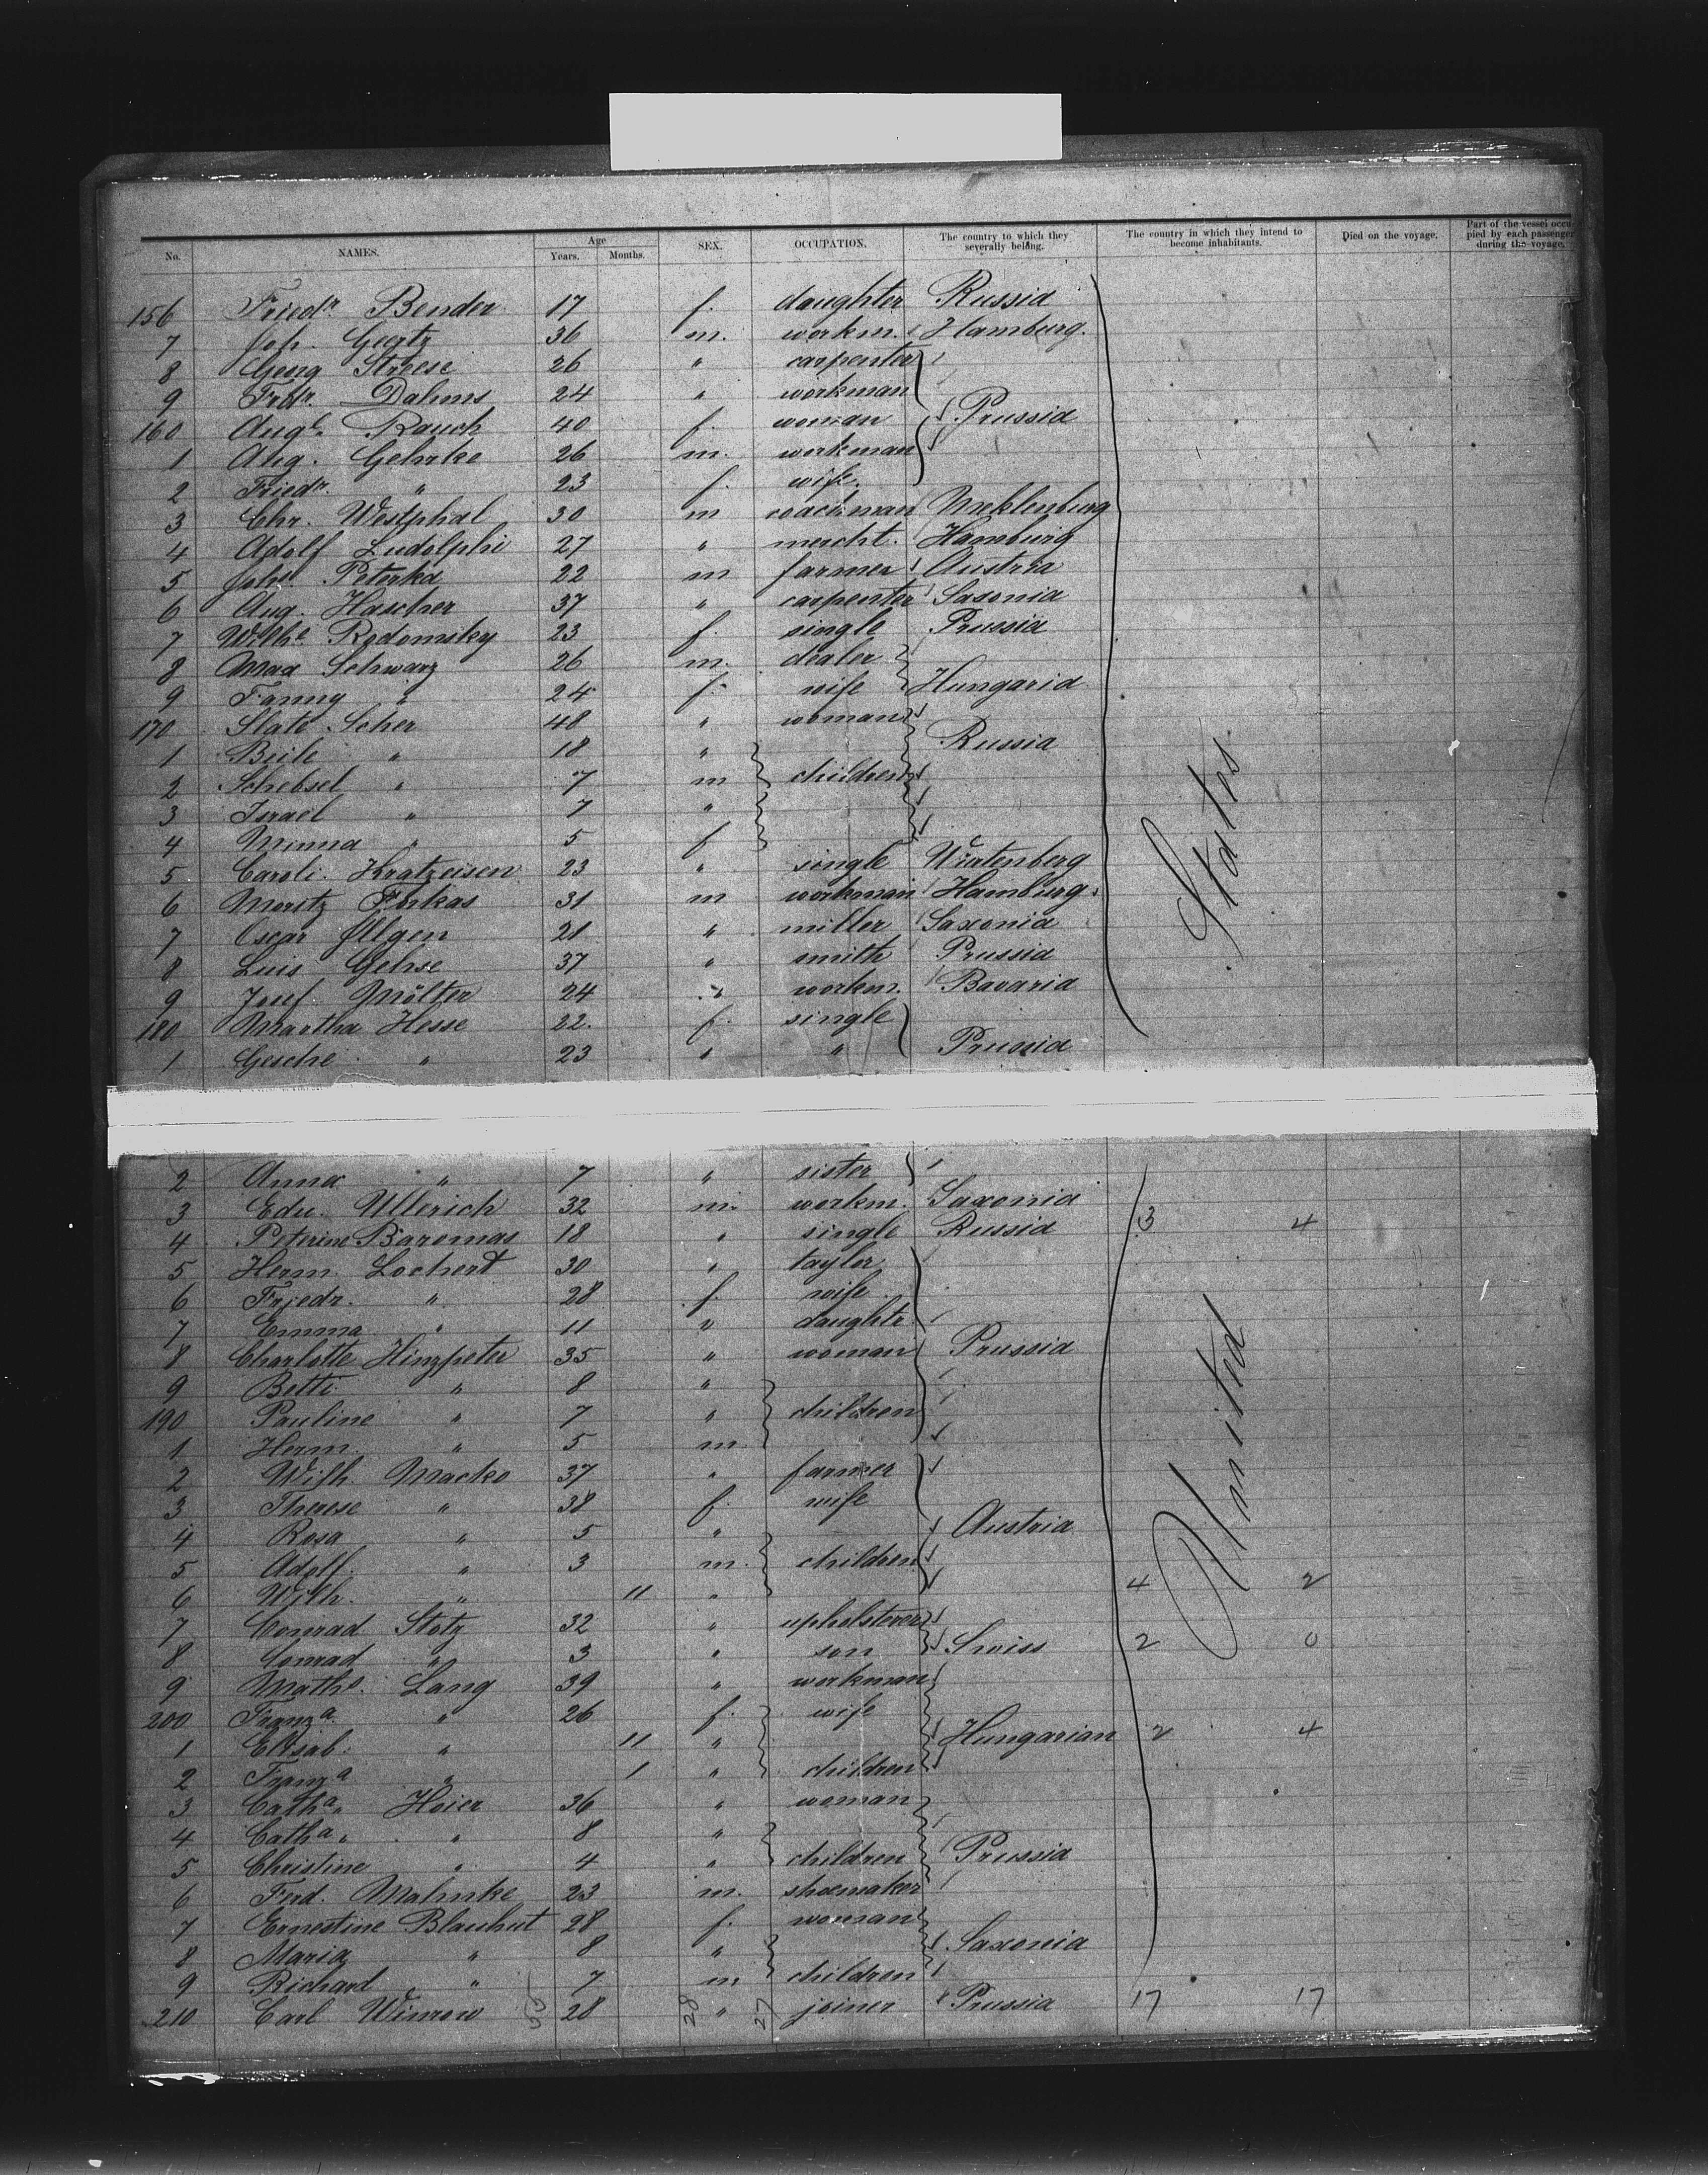 No. NAMES. Age Years. Months. SEX. OCCUPATION. The country to which they severally belong. The country in which they intend to become inhabitants. Died on the voyage. Part of the vessel occupied by each passenger during the voyage.
156 Friedr. Bender 17 f. daughter Russia
7 Joh. Geertz 36 m. workm. Hamburg.
8 Georg Streese 26 " carpenter
9 Frdr. Dahms 24 " workman
160 Augt. Rauch 40 f. woman Prussia
1 Aug. Gehrke 26 m. workman
2 Friedr. " 23 f. wife.
3 Chr. Westphal 30 m coachman Meklenburg
4 Adolf Ludolphi 27 " mercht. Hamburg
5 Joh. Peterka 22 m farmer Austria
6 Aug. Hascher 37 " carpenter Saxonia
7 Wilhe Rodomsky 23 f. single Prussia
8 Max Schwarz 26 m. dealer
9 Fanny " 24 f. wife Hungaria
170 Slate Scher 48 " woman
1 Beile " 18 " Russia
2 Schebsel " 7 m children
3 Israel " 7 "
4 Minna " 5 f
5 Caroli. Kratzeisen 23 " single Würtenberg
6 Moritz Farkas 31 m workman Hamburg.
7 Oscar Illgen 21 " miller Saxonia
8 Luis Gehse 37 " smith Prussia
9 Josef Mölter 24 " workm. Bavaria
180 Martha Hesse 22. f. single
1 Gesche " 23 " " Prussia
States
2 Anna " 7 " sister
3 Edu. Ullerich 32 m. workm. Saxonia
4 Peterine Baromas 18 " single Russia 3 4
5 Herm. Lochert 30 " taylor
6 Friedr. " 28 f. wife
7 Emma " 11 " daughtr.
8 Charlotte Hinzpeter 35 " woman Prussia
9 Betti " 8 "
190 Pauline " 7 " children
1 Herm. " 5 m
2 Wilh. Macko 37 " farmer
3 Therese " 38 f. wife
4 Rosa " 5 " Austria
5 Adolf. " 3 m. children
6 Wilh. " 11 " 4 2
7 Conrad Stotz 32 " upholsterer
8 Conrad " 3 " son Swiss 2 0
9 Mathe. Lang 39 " workman
200 Franza " 26 f. wife
1 Elisab. " 11 " Hungarian 2 4
2 Franza " 1 " children
3 Catha. Hoier 36 " woman
4 Catha. " 8 "
5 Christine " 4 " children Prussia
6 Ferd. Mahnke 23 m. shoemaker
7 Ernestine Blauhut 28 f. woman
8 Maria " 8 " Saxonia
9 Richard " 7 m children
210 Carl Winrow 55 28 28 " 27 joiner Prussia 17 17
United